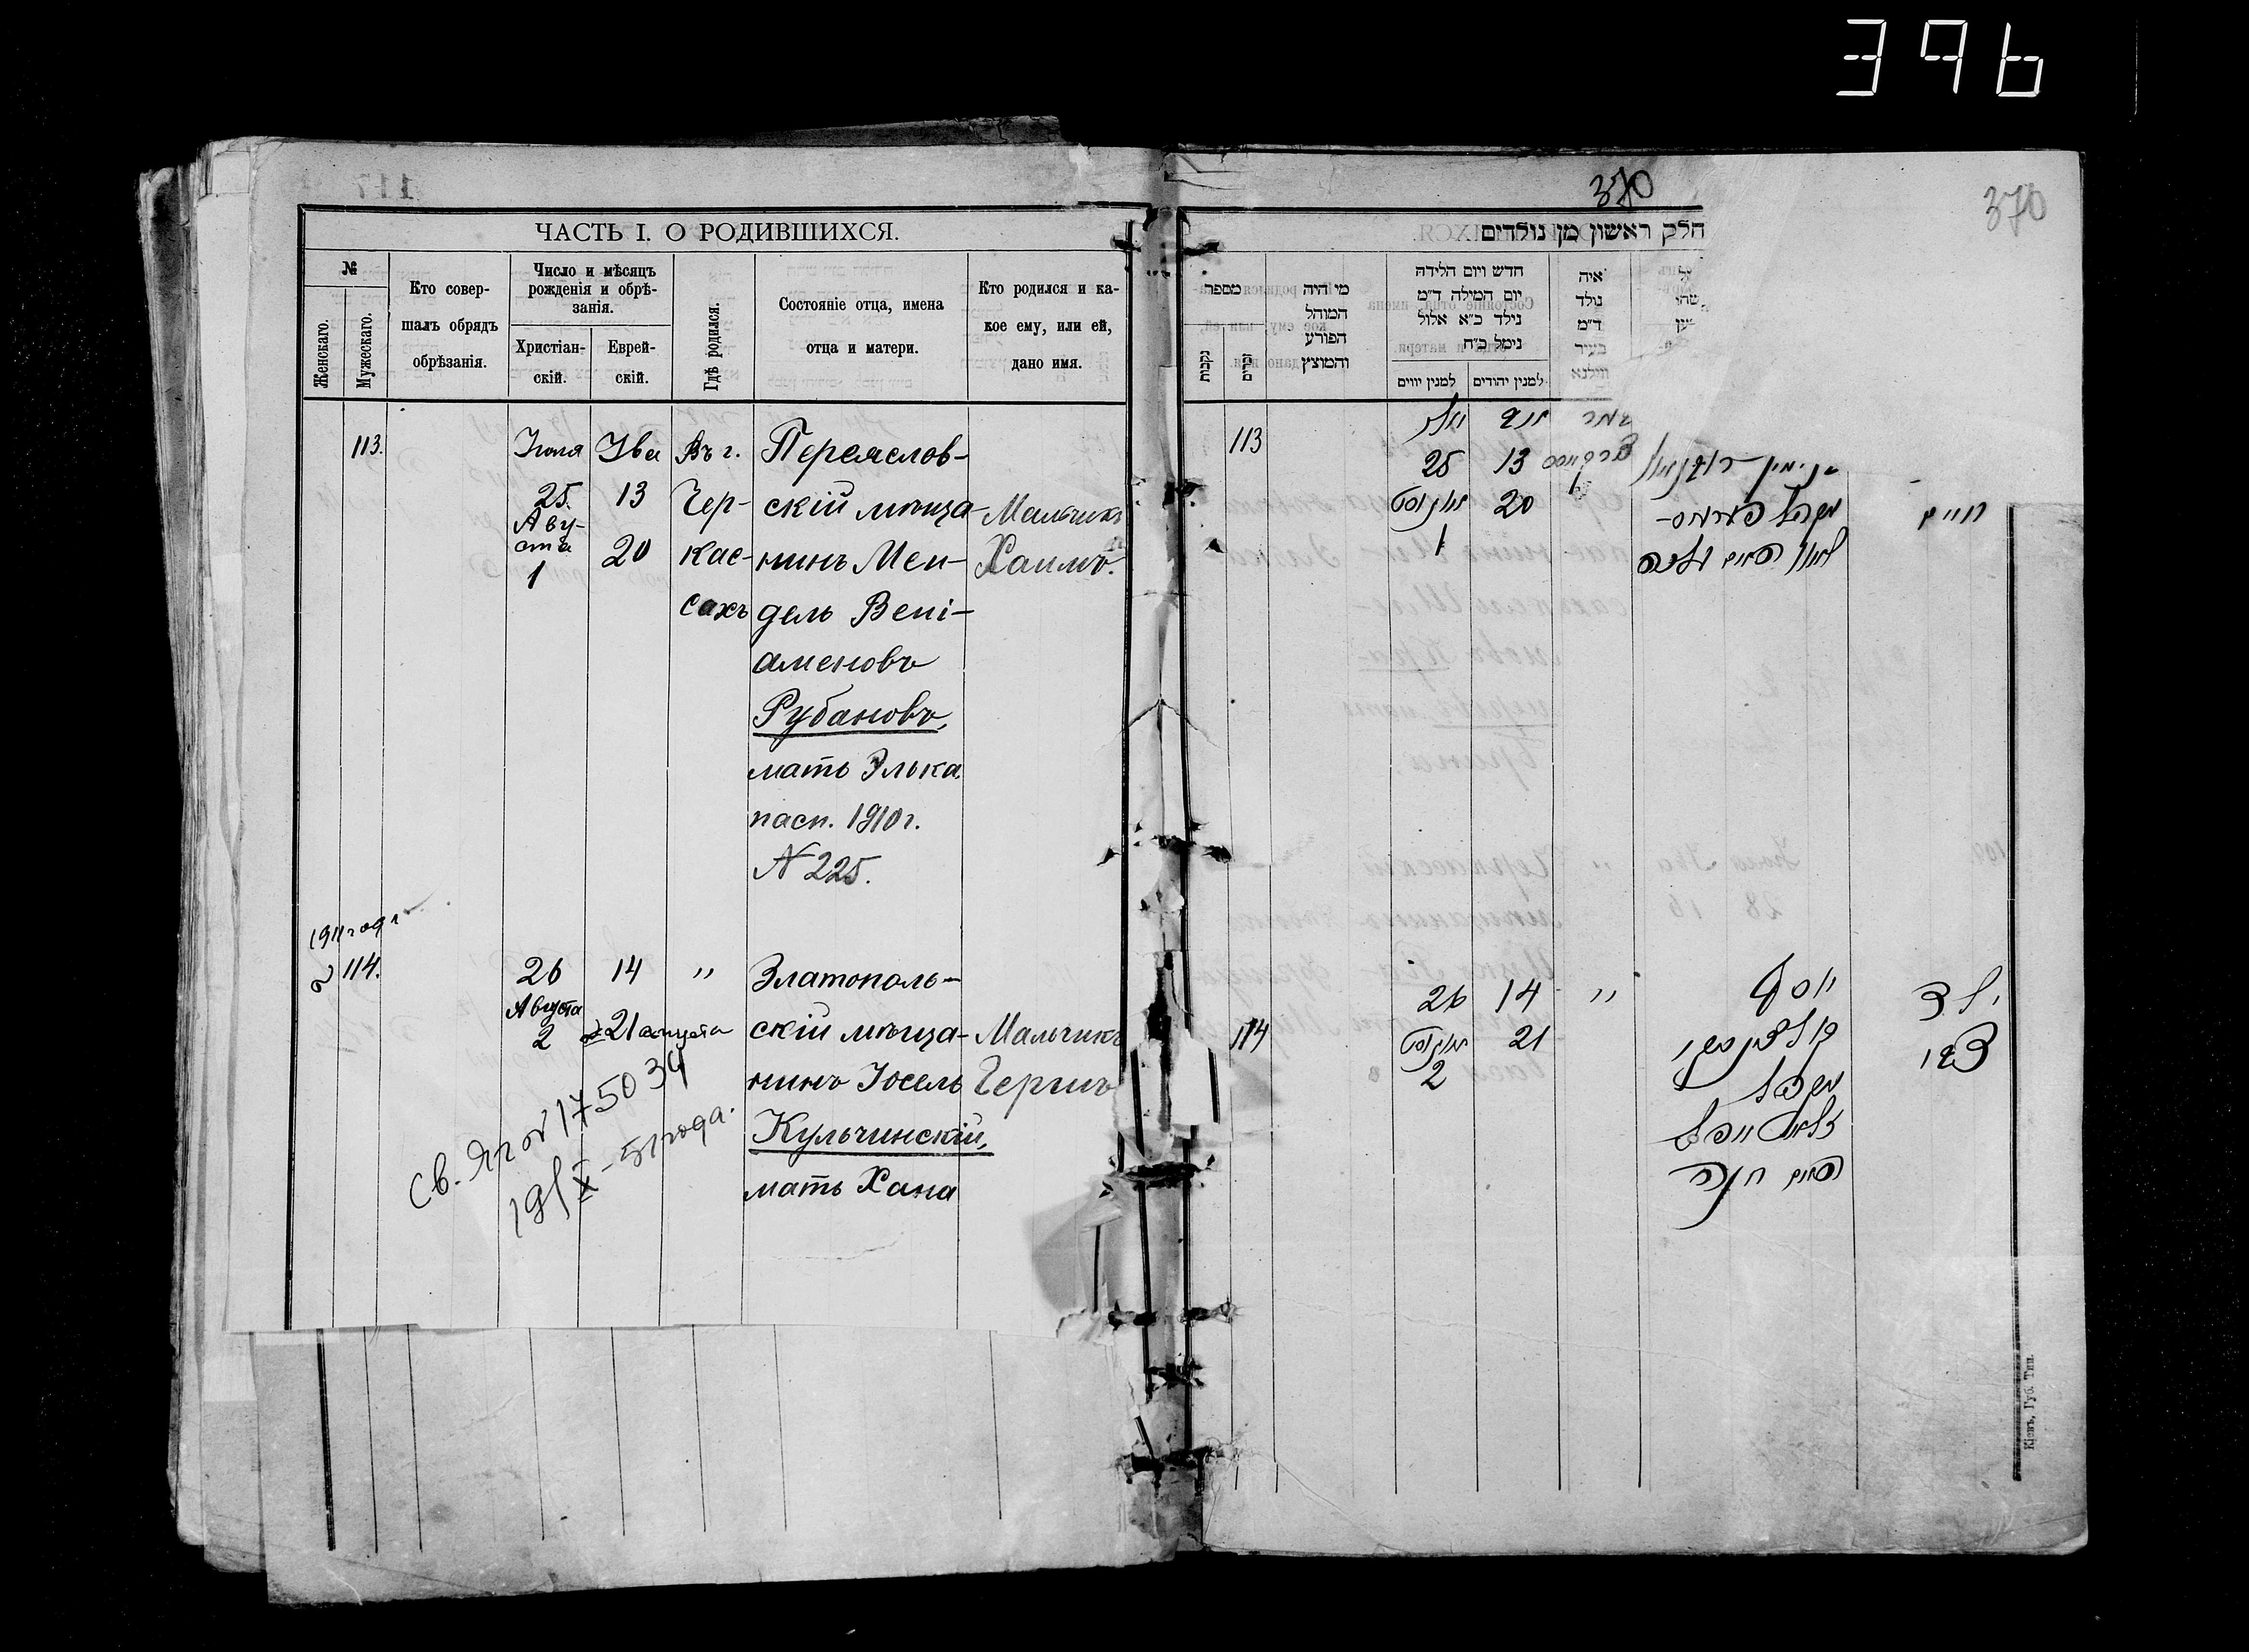 396
370
370
ЧАСТЬ I. О РОДИВШИХСЯ.
№
Женскаго.
Мужескаго.
Кто совер-
шалъ обрядъ
обрѣзанія.
Число и мѣсяцъ
рожденія и обрѣ-
занія.
Христіан-
скій.
Еврей-
скій.
Гдѣ родился.
Состояніе отца, имена
отца и матери.
Кто родился и ка-
кое ему, или ей,
дано имя.
113.
Июля
25.
Авгу-
ста
1
Ява
13
20
Въ г.
Чер-
кас-
сахъ
Переяслов-
скій мѣща-
нинъ Мен-
дель Вені-
аменовъ
Рубановъ,
мать Элька
пасп. 1910 г.
N 225.
Мальчикъ
Хаимъ.
1911 года
114.
26
Августа
2
14
21 августа
"
Златополь-
скій мѣща-
нинъ Іосель
Кульчинскій,
мать Хана
Мальчикъ
Гершъ
Св. ЯГ № 175034
19/X - 51 года.
חלק ראשון מן נולדים
מספר
נקבות
זכרים
מי היה
המוהל
הפורע
והמוצץ
חדש ויום הלידה
יום המילה ד״מ
נילד כ״א אלול
נימל כ״ח
למנין יווים
למנין יהודים
איה
נולד
ד״מ
בעיר
ווילנא
113
יולי
25
אוגוסט
1
אב
13
20
חיים
114
26
אוגוסט
2
14
21
"
יוסף
ילד
צבי
האם חנה
Кіевъ, Губ. Тип.